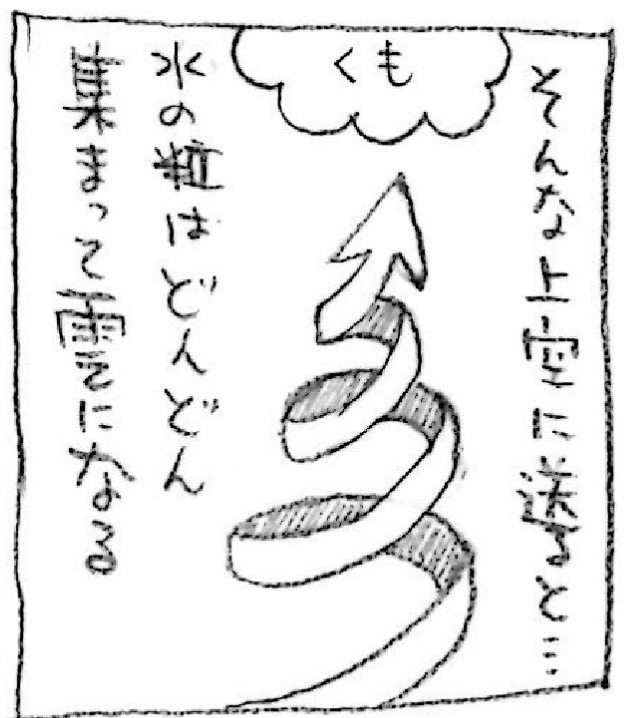 そんな上空に
くも
水の粒はどんどん
集まって雲になる